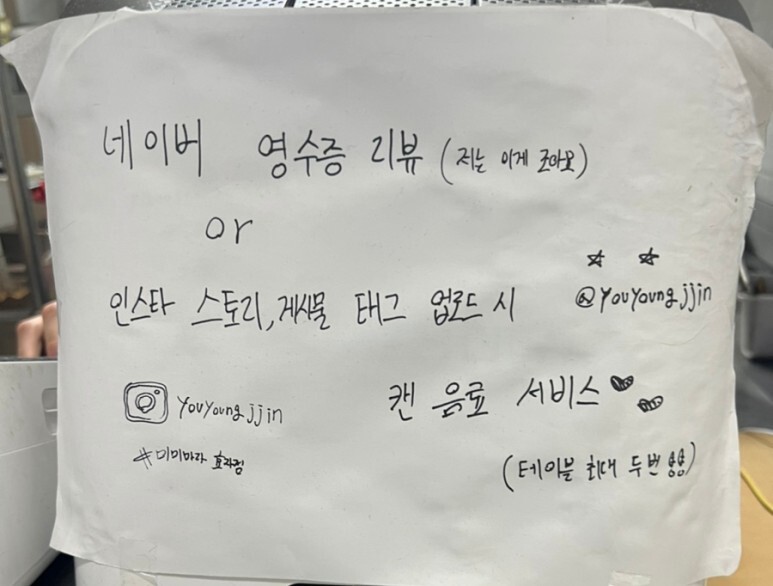 네이버 영수증 리뷰 (저는 이게 조아요)
or
인스타 스토리, 게시물 태그 업로드 시 @youyoung.jjin
youyoung.jjin
캔 음료 서비스
#미미마라 효자점
(테이블 최대 두번 용용)